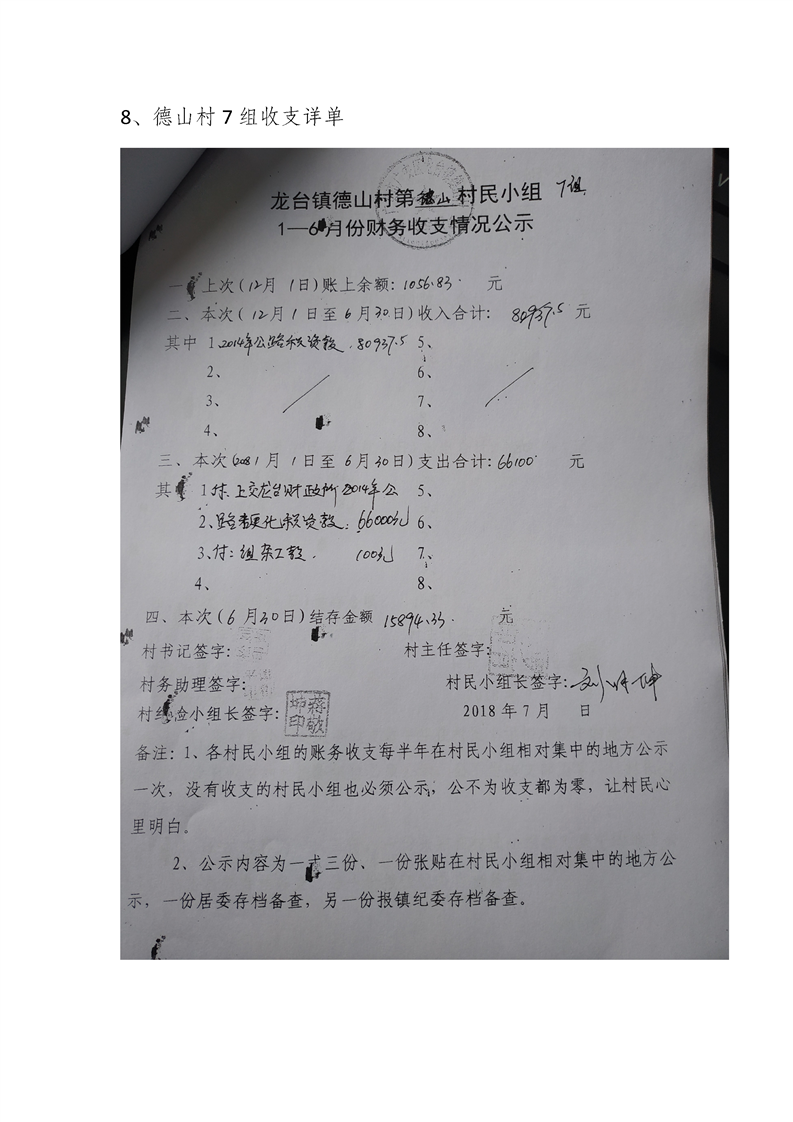 8、德山村 7 组收支详单
龙台镇德山村第德山村民小组 7组
1—6月份财务收支情况公示
一、上次(12月1日)账上余额:1056.83 元
二、本次(12月1日至6月30日)收入合计: 80937.5 元
其中 1、2014年公路积资款.80937.5 5、
2、 6、
3、 7、
4、 8、
三、本次(1月1日至6月30日)支出合计:66100 元
其 1付:上交龙台财政所2014年公 5、
2、路硬化积资款:66000元 6、
3、付:组杂工款. 100元 7、
4、 8、
四、本次(6月30日)结存金额 15894.33 元
村书记签字: 村主任签字:
村务助理签字: 村民小组长签字:
村纪检小组长签字: 蒋敬坤印 2018年7月 日
备注:1、各村民小组的账务收支每半年在村民小组相对集中的地方公示
一次,没有收支的村民小组也必须公示,公不为收支都为零,让村民心
里明白。
2、公示内容为一式三份、一份张贴在村民小组相对集中的地方公
示,一份居委存档备查,另一份报镇纪委存档备查。